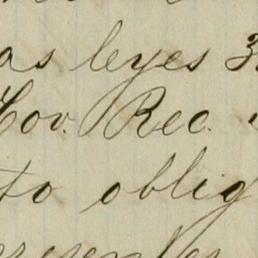 as leyes 3
Gov. Rec.
to oblig